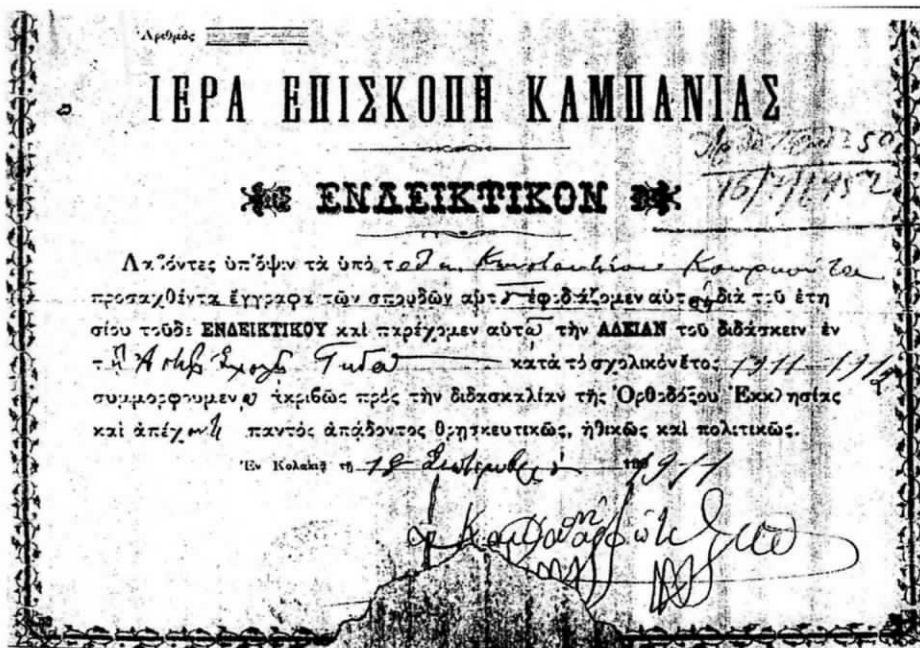 Ἀριθμὸς
ΙΕΡΑ ΕΠΙΣΚΟΠΗ ΚΑΜΠΑΝΙΑΣ
ΕΝΔΕΙΚΤΙΚΟΝ
Λαβόντες ὑπ' ὄψιν τὰ ὑπὸ τοῦ κ. Κωνσταντίνου
προσαχθέντα ἔγγραφα τῶν σπουδῶν αὐτοῦ ἐφοδιάζομεν αὐτὸν διὰ τοῦ ἐτη
σίου τοῦδε ΕΝΔΕΙΚΤΙΚΟΥ καὶ παρέχομεν αὐτῷ τὴν ΑΔΕΙΑΝ τοῦ διδάσκειν ἐν
τῇ Ἀστικῇ Σχολῇ Γιδᾶ κατὰ τὸ σχολικὸν ἔτος 1911-1912
συμμορφουμένῳ ἀκριβῶς πρὸς τὴν διδασκαλίαν τῆς Ὀρθοδόξου Ἐκκλησίας
καὶ ἀπέχοντι παντὸς ἀπᾴδοντος θρησκευτικῶς, ἠθικῶς καὶ πολιτικῶς.
Ἐν Κολακιᾷ τῇ 18 Σεπτεμβρίου 1911